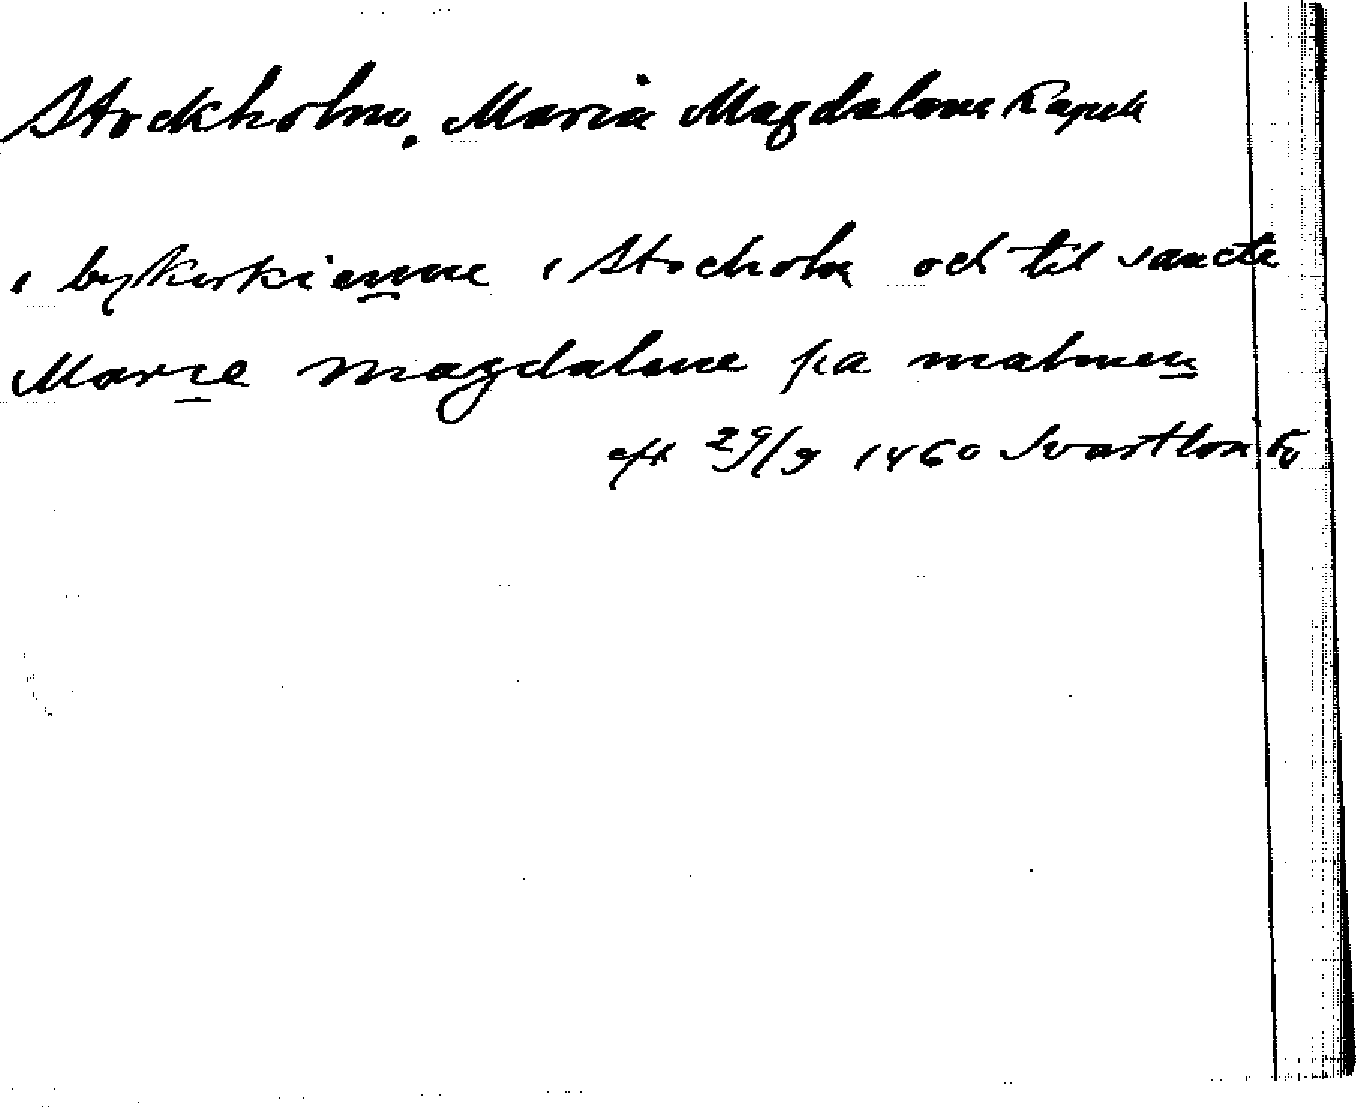 Stockholm, Maria Magdalena Kapell
i bykirkienne i Stocholm och til sancte
Marie magdalene pa malmen
eft 29/9 1460 Svartlösa